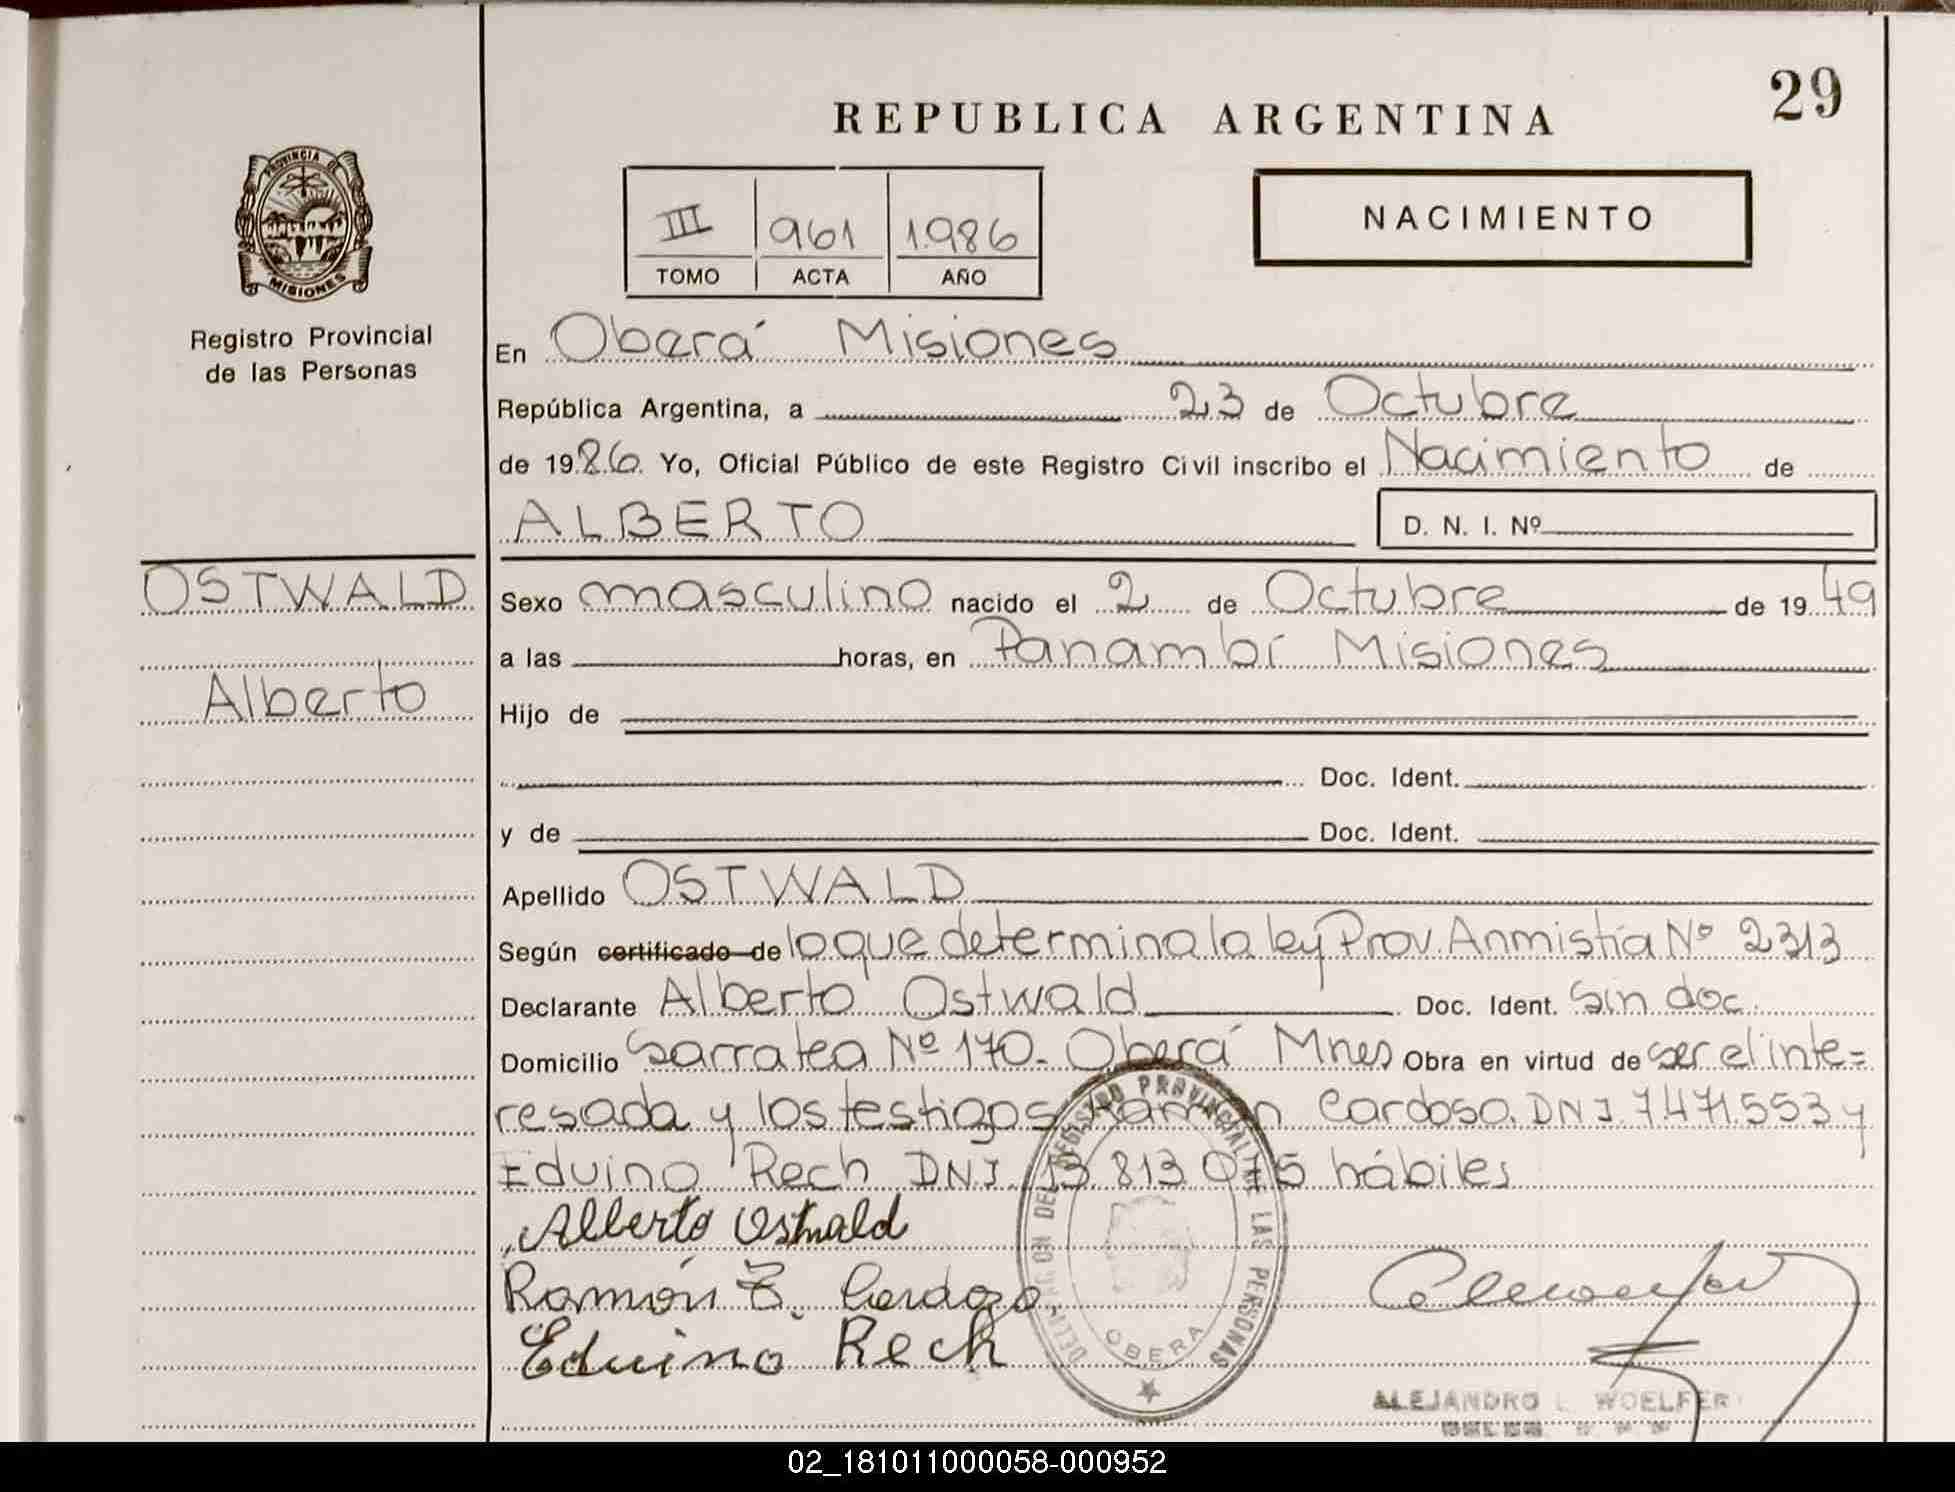 29
REPUBLICA ARGENTINA
PROVINCIA DE
MISIONES
Registro Provincial
de las Personas
III 961 1.986
TOMO ACTA AÑO
NACIMIENTO
En Oberá Misiones
República Argentina, a 23 de Octubre
de 1986 Yo, Oficial Público de este Registro Civil inscribo el Nacimiento de
ALBERTO
D. N. I. Nº
OSTWALD
Alberto
Sexo masculino nacido el 2 de Octubre de 19 49
a las horas, en Panambí Misiones
Hijo de
Doc. Ident.
y de Doc. Ident.
Apellido OSTWALD
Según certificado de lo que determina la ley Prov. Anmistía Nº 2313
Declarante Alberto Ostwald Doc. Ident. Sin doc.
Domicilio Sarratea Nº 170- Oberá Mnes Obra en virtud de ser el inte=
resada y los testigos Ramón Cardoso. DNI 7.471.553 y
Eduino Rech DNI 13.813.075 hábiles
Alberto Ostwald
Ramón Cardozo
Eduino Rech
DEL REGISTRO PROVINCIAL DE LAS PERSONAS
OBERA
ALEJANDRO L. WOELFER
02_181011000058-000952